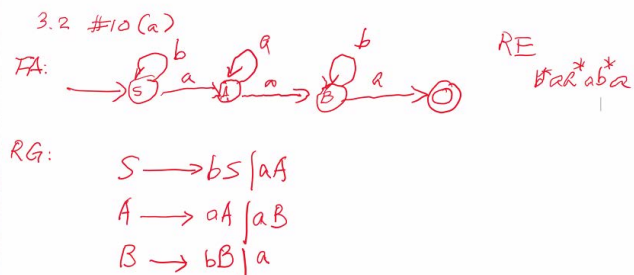 3.2 #10(a)
FA:
b
a
b
S
a
A
a
B
a
RE
b*aa*ab*a
RG:
S → bS | aA
A → aA | aB
B → bB | a